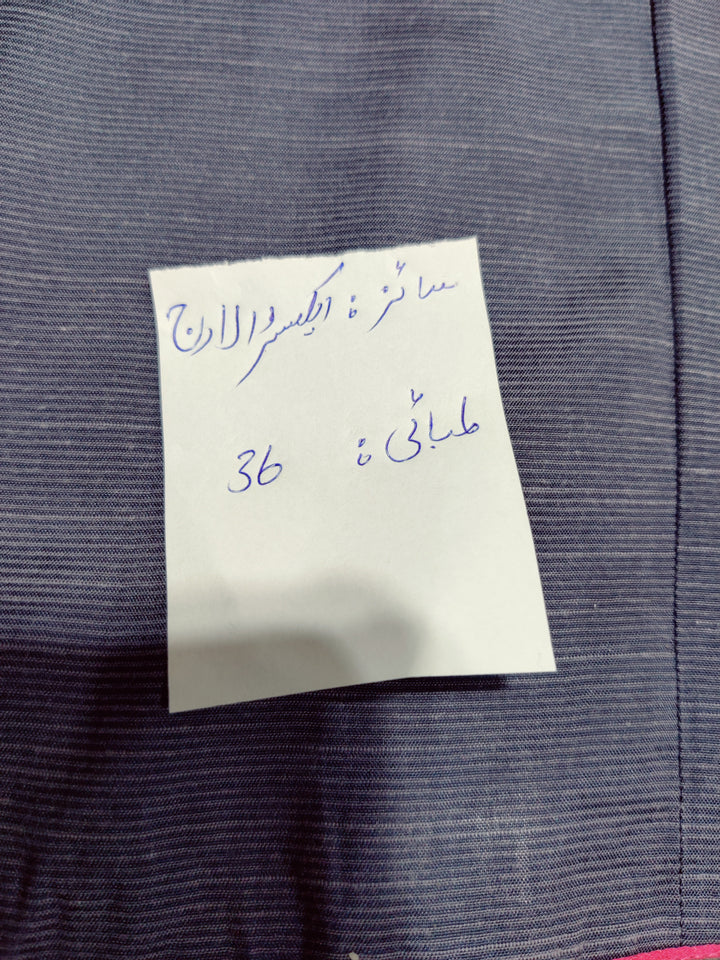 سائز: ایکسٹرا لارج
لمبائی: 36